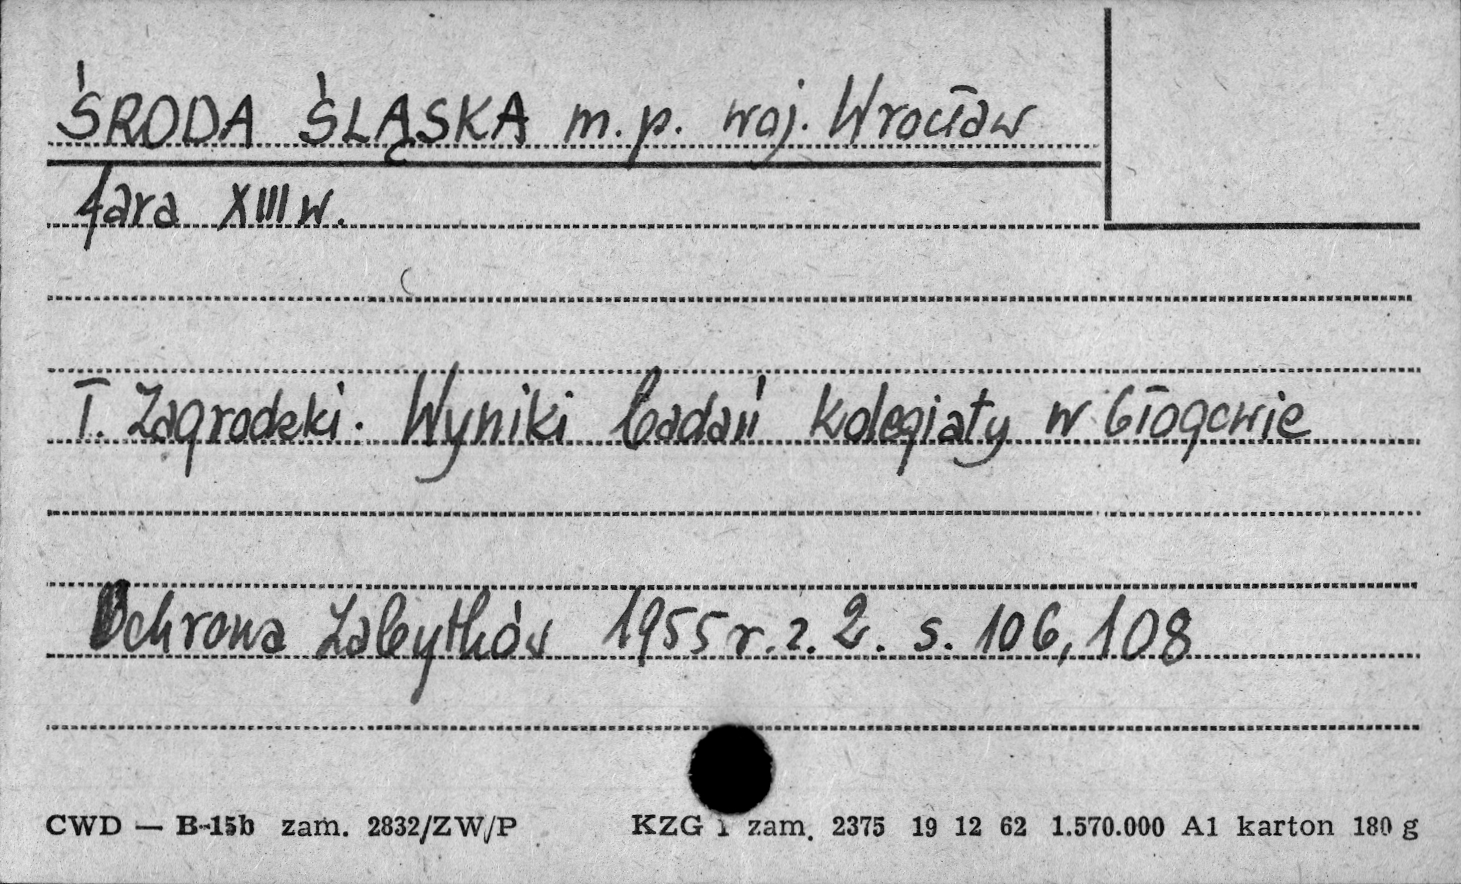 ŚRODA ŚLĄSKA m.p. woj. Wrocław
fara XIII w.
T. Zagrodzki. Wyniki badań kolegiaty w Głogowie
Ochrona Zabytków 1955 r. z. 2. s. 106, 108
CWD — B-15b zam. 2832/ZW/P KZG 1 zam. 2375 19 12 62 1.570.000 A1 karton 180 g